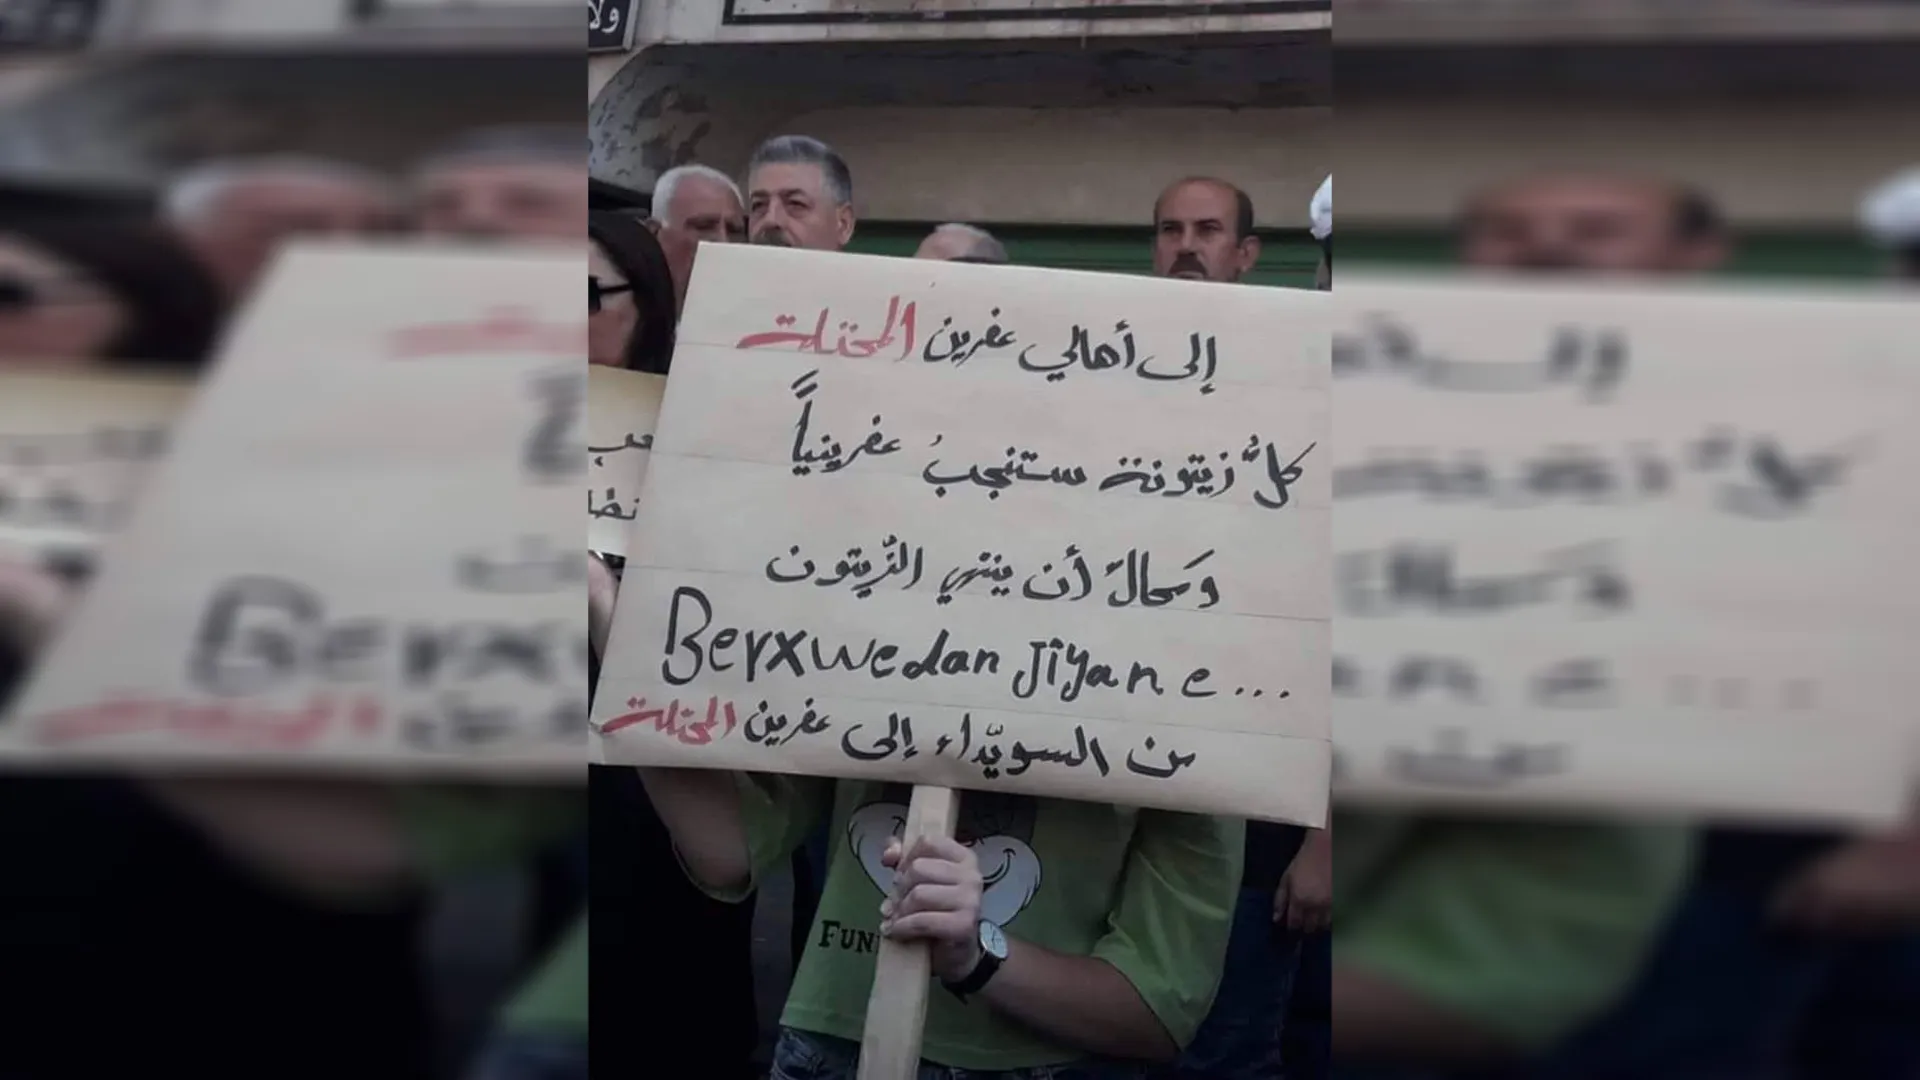 ولا
إلى أهالي عفرين المحتلة
كلُّ زيتونة ستنجبُ عفرينياً
ومحالٌ أن ينتهي الزّيتون
Berxwedan Jîyan e...
من السويّداء إلى عفرين المحتلة
FUN